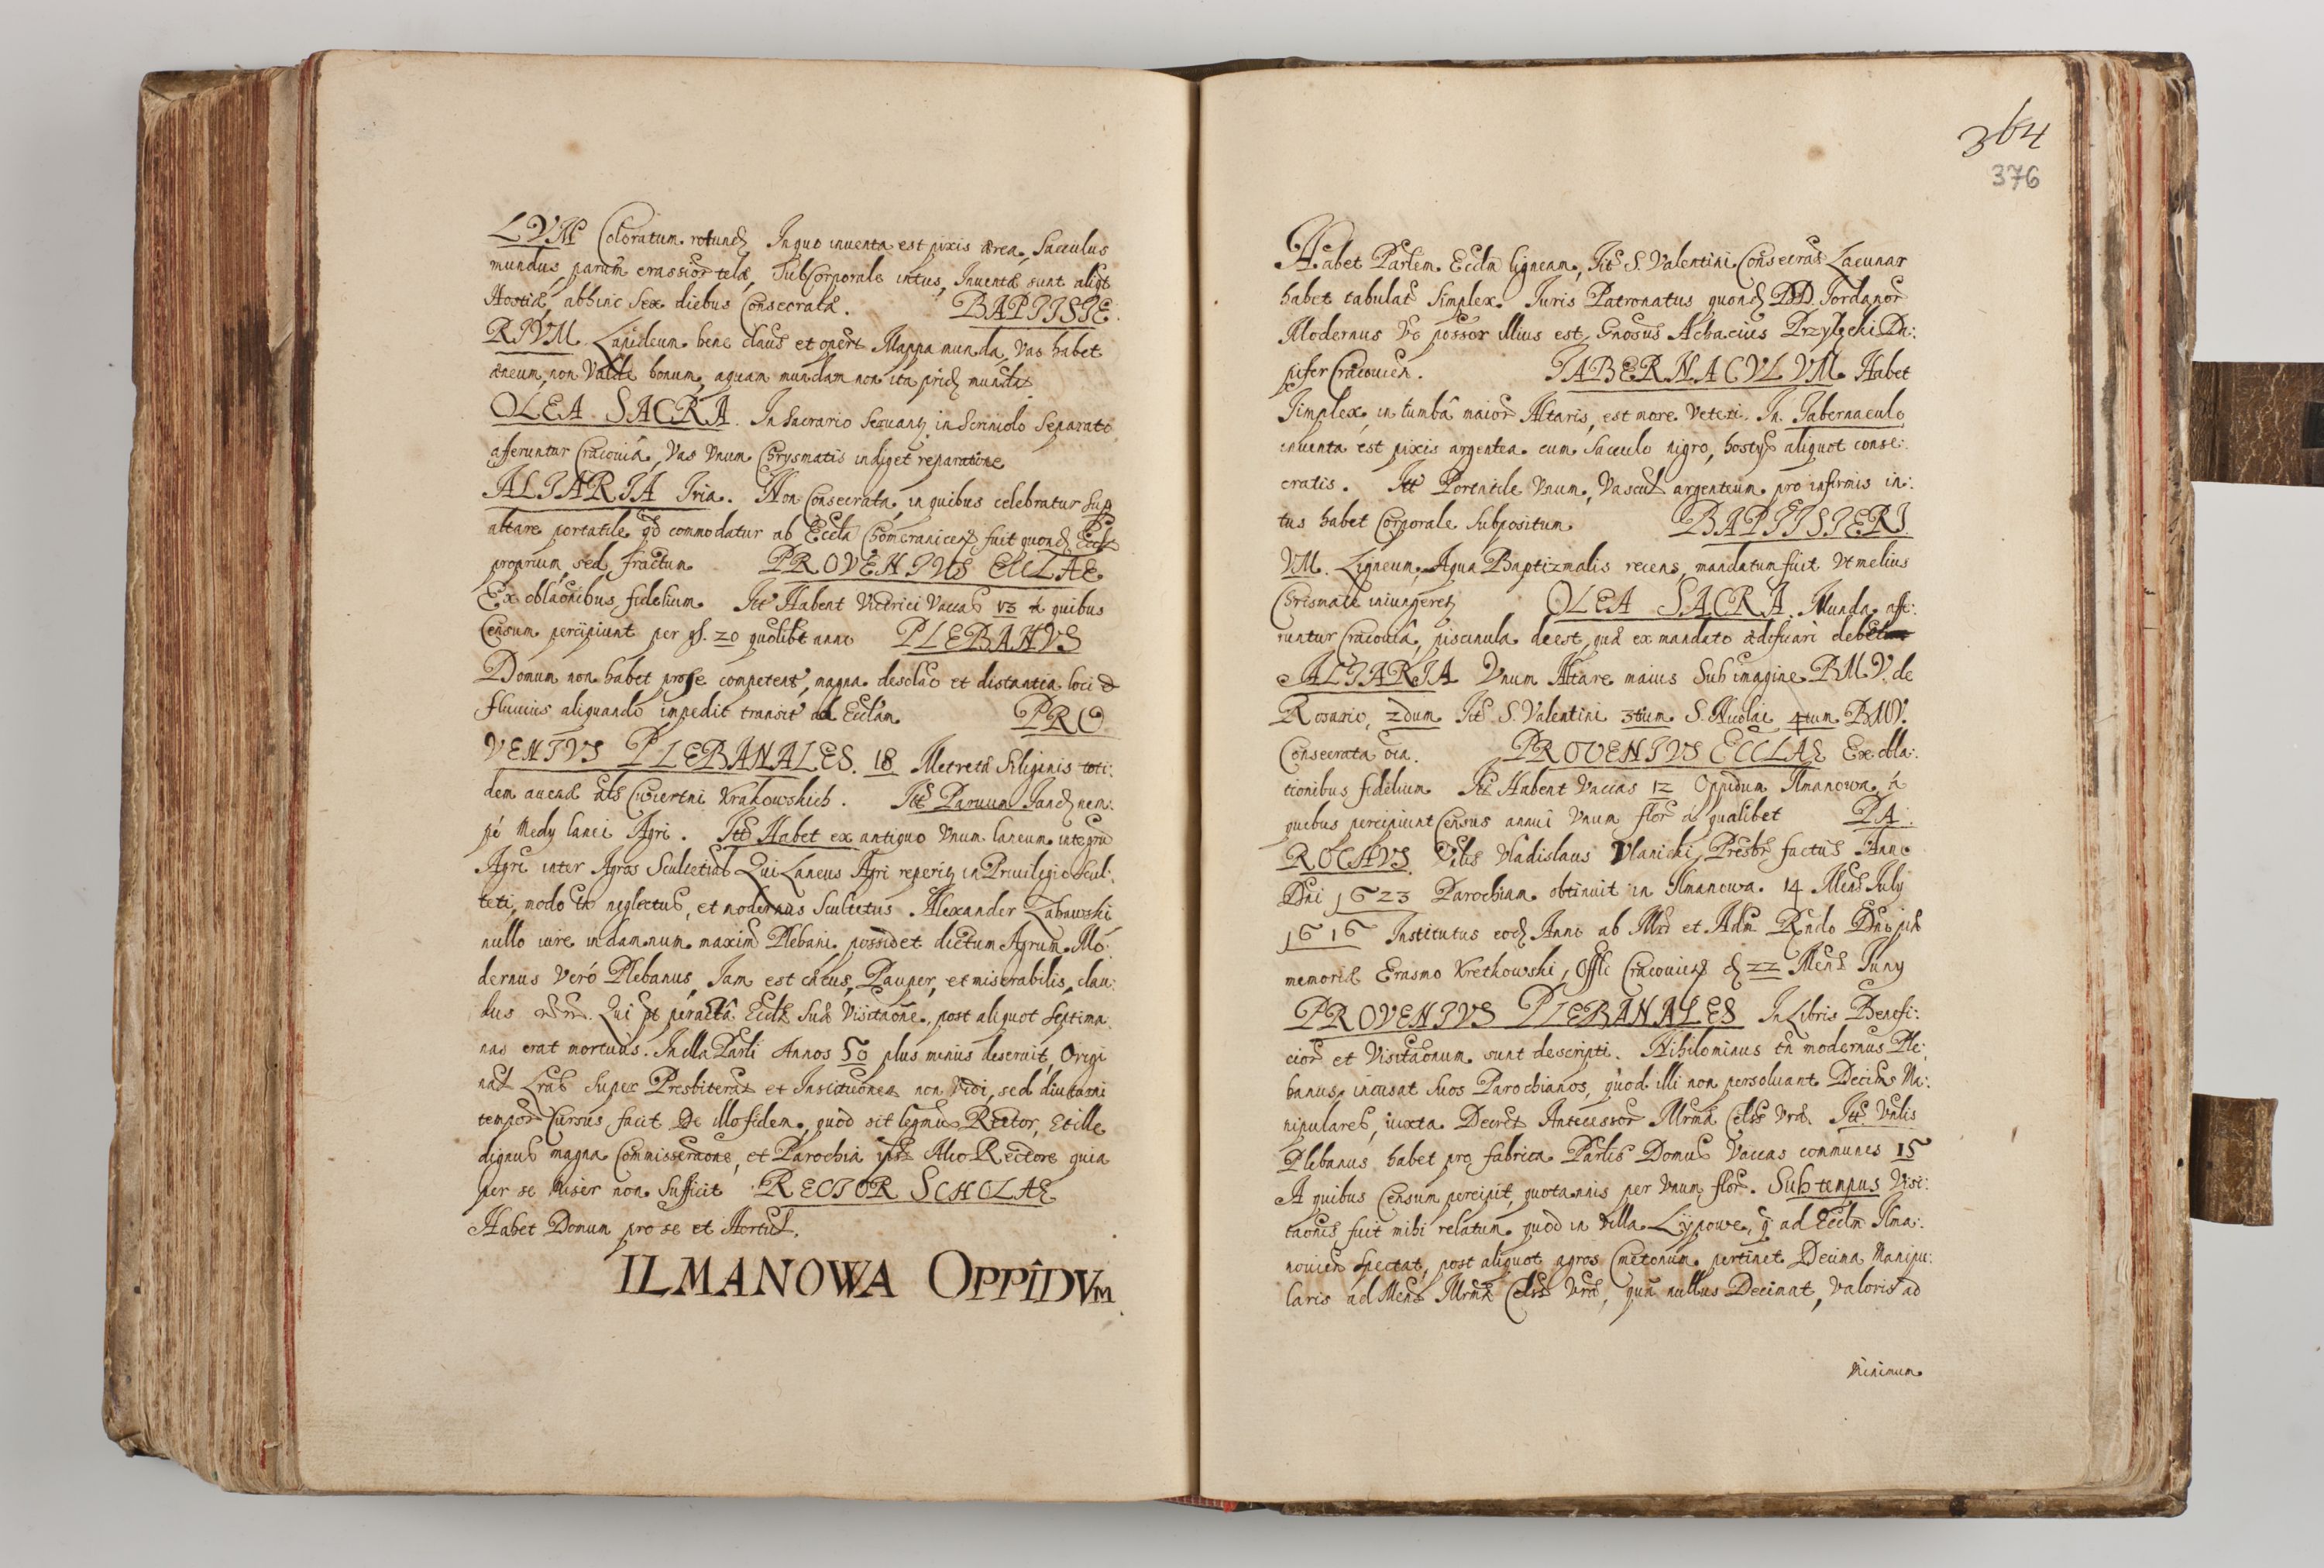 LVM Coloratum rotund, In quo inuenta est pixis ærea, Sacculus
mundus, parum crassior telæ, Sub Corporale intus, Inuentæ sunt aliqt
Hostiæ, abhinc Sex diebus Consecratæ. BAPTISTE:
RIVM. Lapideum bene claus et opert Mappa munda, Vas habet
æneum, non Valde bonum, aquam mundam non ita prid, mundat
OLEA SACRA. In Sacrario Seruant, in Scriniolo Separato
afferuntur Cracouiâ, Vas Vnum Chrysmatis indiget reparatione
ALTARIA Tria. Non Consecrata, in quibus celebratur sup
altare portatile, qd commodatur ab Eccla Chomeranicen fuit quond Eccle
proprium, sed fractum PROVENTVS ECCLAE
Ex oblaonibus fidelium. Itt Habent Victrici Vaccas 13 à quibus
Censum percipiunt per gs. 20 quolibt anno PLEBANVS
Domum non habet pro se competent, magna desolao et distantia loci &
fluuius aliquando impedit transit ad Ecclam PRO
VENTVS PLEBANALES. 18 Metretæ Siliginis toti:
dem auenæ als Cwiertni Krakowskich. Itt Paruum Land nem:
pè Medy lanei Agri. Itt Habet ex antiquo Vnum laneum integru
Agri inter Agros Scultetial Qui Laneus Agri reperit, in Priuilegio Scul:
teti, modo tn neglectus, et modernus Scultetus Alexander Zabawski
nullo iure in damnum maxim Plebani possidet dictum Agrum. Mo:
dernus verò Plebanus, Iam est cæcus, Pauper, et miserabilis, clau:
dus Qui pt peractâ Eccle Suæ Visitaone, post aliquot Septima
nas erat mortuus. In illa Parli Annos 50 plus minus deseruit, Origi
nal Lras Super Presbiterat et Institutionem non Vidi, sed diuturni
tempor Cursus facit De illo fidem, quod sit legmus Rector, Et ille
dignus magna Commiseraone, et Parochia ipsa Alio Rectore quia
per se Miser non Sufficit RECTOR SCHOLAE
Habet Domum pro se et Hortul.
ILMANOWA OPPIDVM
364
376
Habet Parlem Eccln ligneam, Tit S. Valentini Consecrat Lacunar
habet tabulat Simplex. Iuris Patronatus quond DD. Iordanor
Modernus Vo possor illius est Gnosus Achacius Przyłęcki Da:
pifer Cracouien. TABERNACVLVM. Habet
Simplex, in tumbâ maior Altaris, est more Veteri. In Tabernaculo
inuenta est pixis argentea cum Sacculo nigro, hostys aliquot conse:
cratis. Itt Portatile Vnum, Vascul argenteum pro infirmis in:
tus habet Corporale Subpositum BAPTISTERI
VM. Ligneum, Aqua Baptizmalis recens, mandatum fuit Vt melius
Chrismale iniungeret, OLEA SACRA. Munda, affe:
runtur Cracouiâ, piscinula deest, quæ ex mandato ædificari debet
ALTARIA Vnum Altare maius Sub imagine BMV. de
Rosario, 2dum Tit S. Valentini 3tium S. Nicolai 4tum BMV.
Consecrata oia. PROVENTVS ECCLAE Ex obla:
tionibus fidelium Itt Habent Vaccas 12 Oppidum Ilmanowa, à
quibus percipiunt Census annui Vnum flor à qualibet PA:
ROCHVS. Vladislaus Vlanicki, Presbr factus Anno
Dni 1623 Parochiam obtinuit in Ilmanowa. 14 Mens July
1616 Institutus eod Anno ab Illrd et Adm Rndo Dno piæ
memoriæ Erasmo Kretkowski, Offli Cracouien d 22 Mens Iuny
PROVENTVS PLEBANALES In Libris Benefi:
cior et Visitaonum sunt descripti. Nihilominus tn modernus Ple:
banus, incusat Suos Parochianos, quod illi non persoluant Decim Ma:
nipulares, iuxta Decret Antecessor Illrmæ Cels Vræ. Itt Vnlis
Plebanus habet pro fabrica Parlis Domus Vaccas communes 15
A quibus Censum percipit, quotannis per Vnum flor. Sub tempus Visi:
taonis fuit mihi relatum quod in Villa Lÿpowe, q ad Eccln Ilma:
nouien spectat, post aliquot agros Cmetonum pertinet Decima Manipu:
laris ad Mens Illrmæ Cels Vræ, qua nullus Decimat, Valoris ad
Minimum